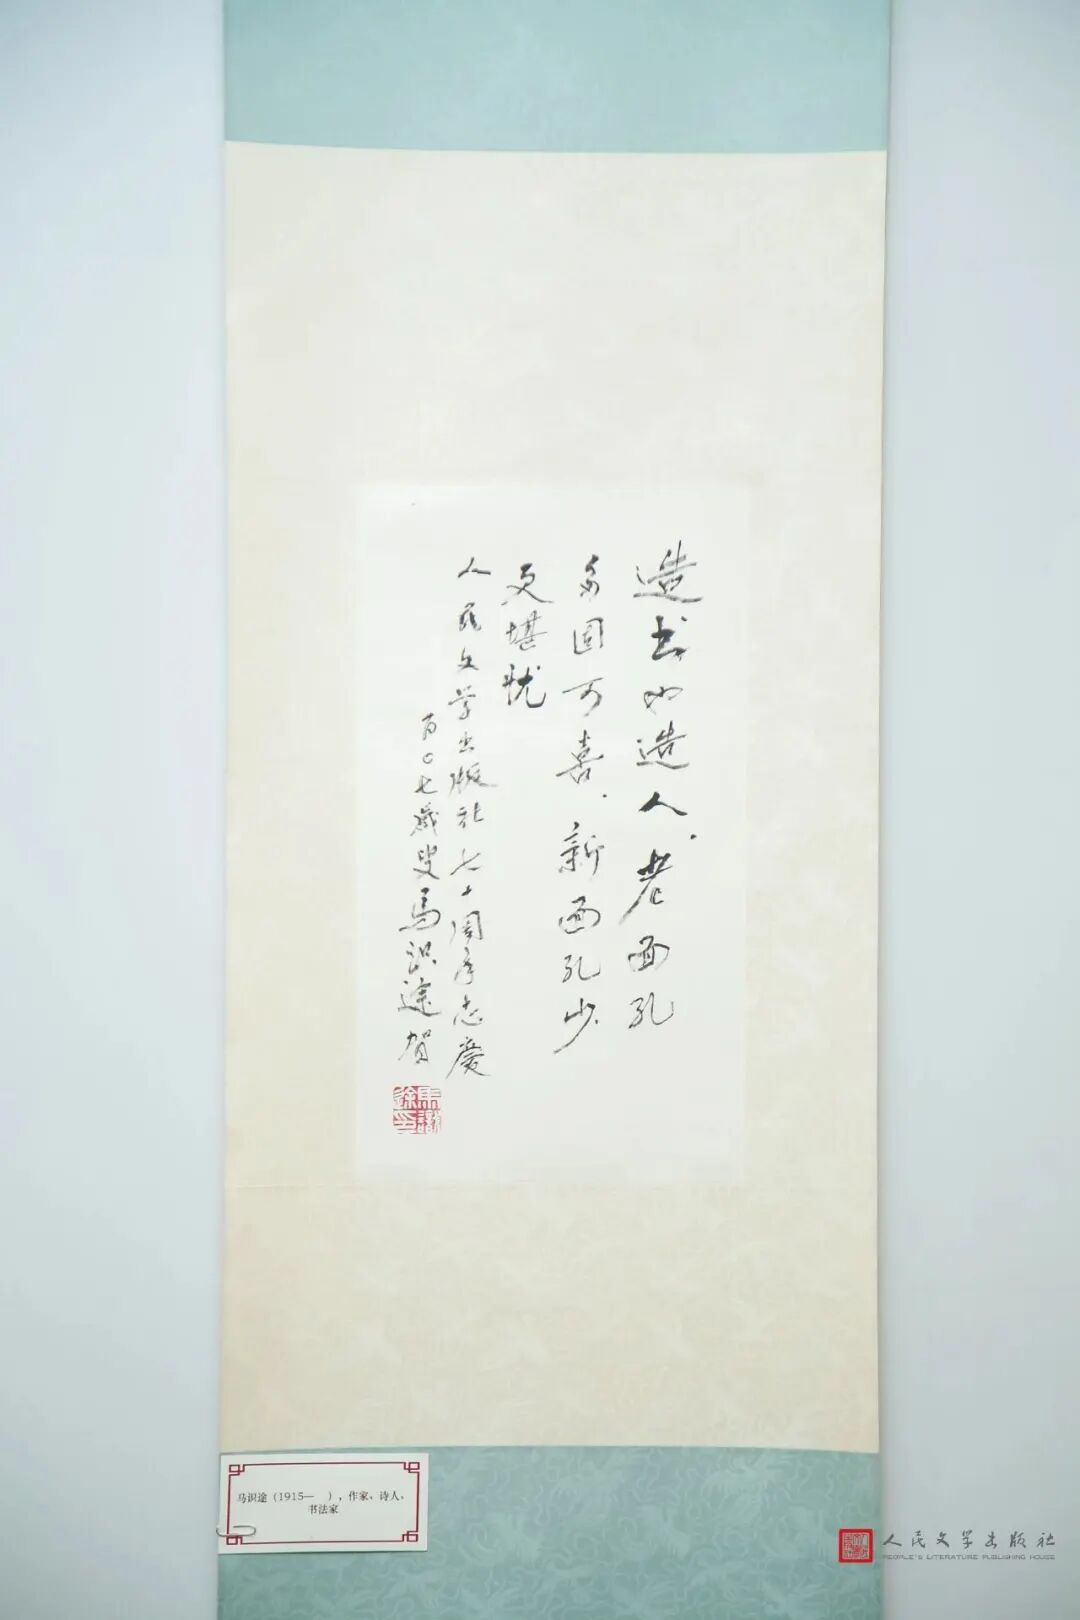 造书如造人，老面孔
多固可喜，新面孔少
更堪忧
人民文学出版社七十周年志庆
百〇七岁叟马识途贺
马识途印
马识途（1915—　），作家、诗人、
书法家
人民文学出版社
PEOPLE'S LITERATURE PUBLISHING HOUSE